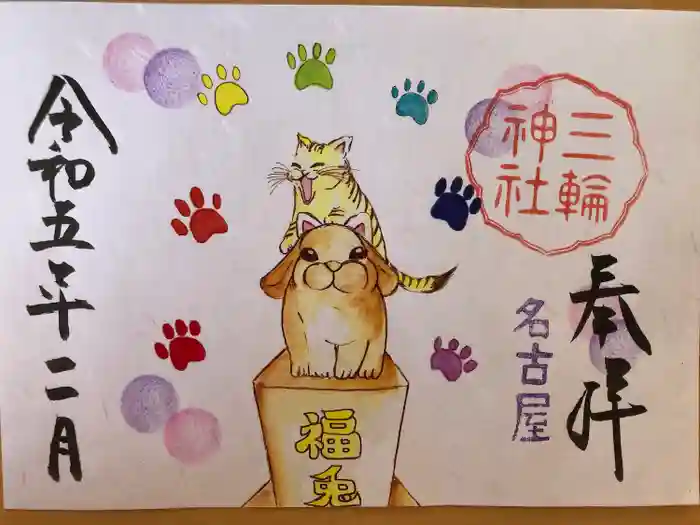 奉拝
三輪
神社
名古屋
福兎
令和五年二月